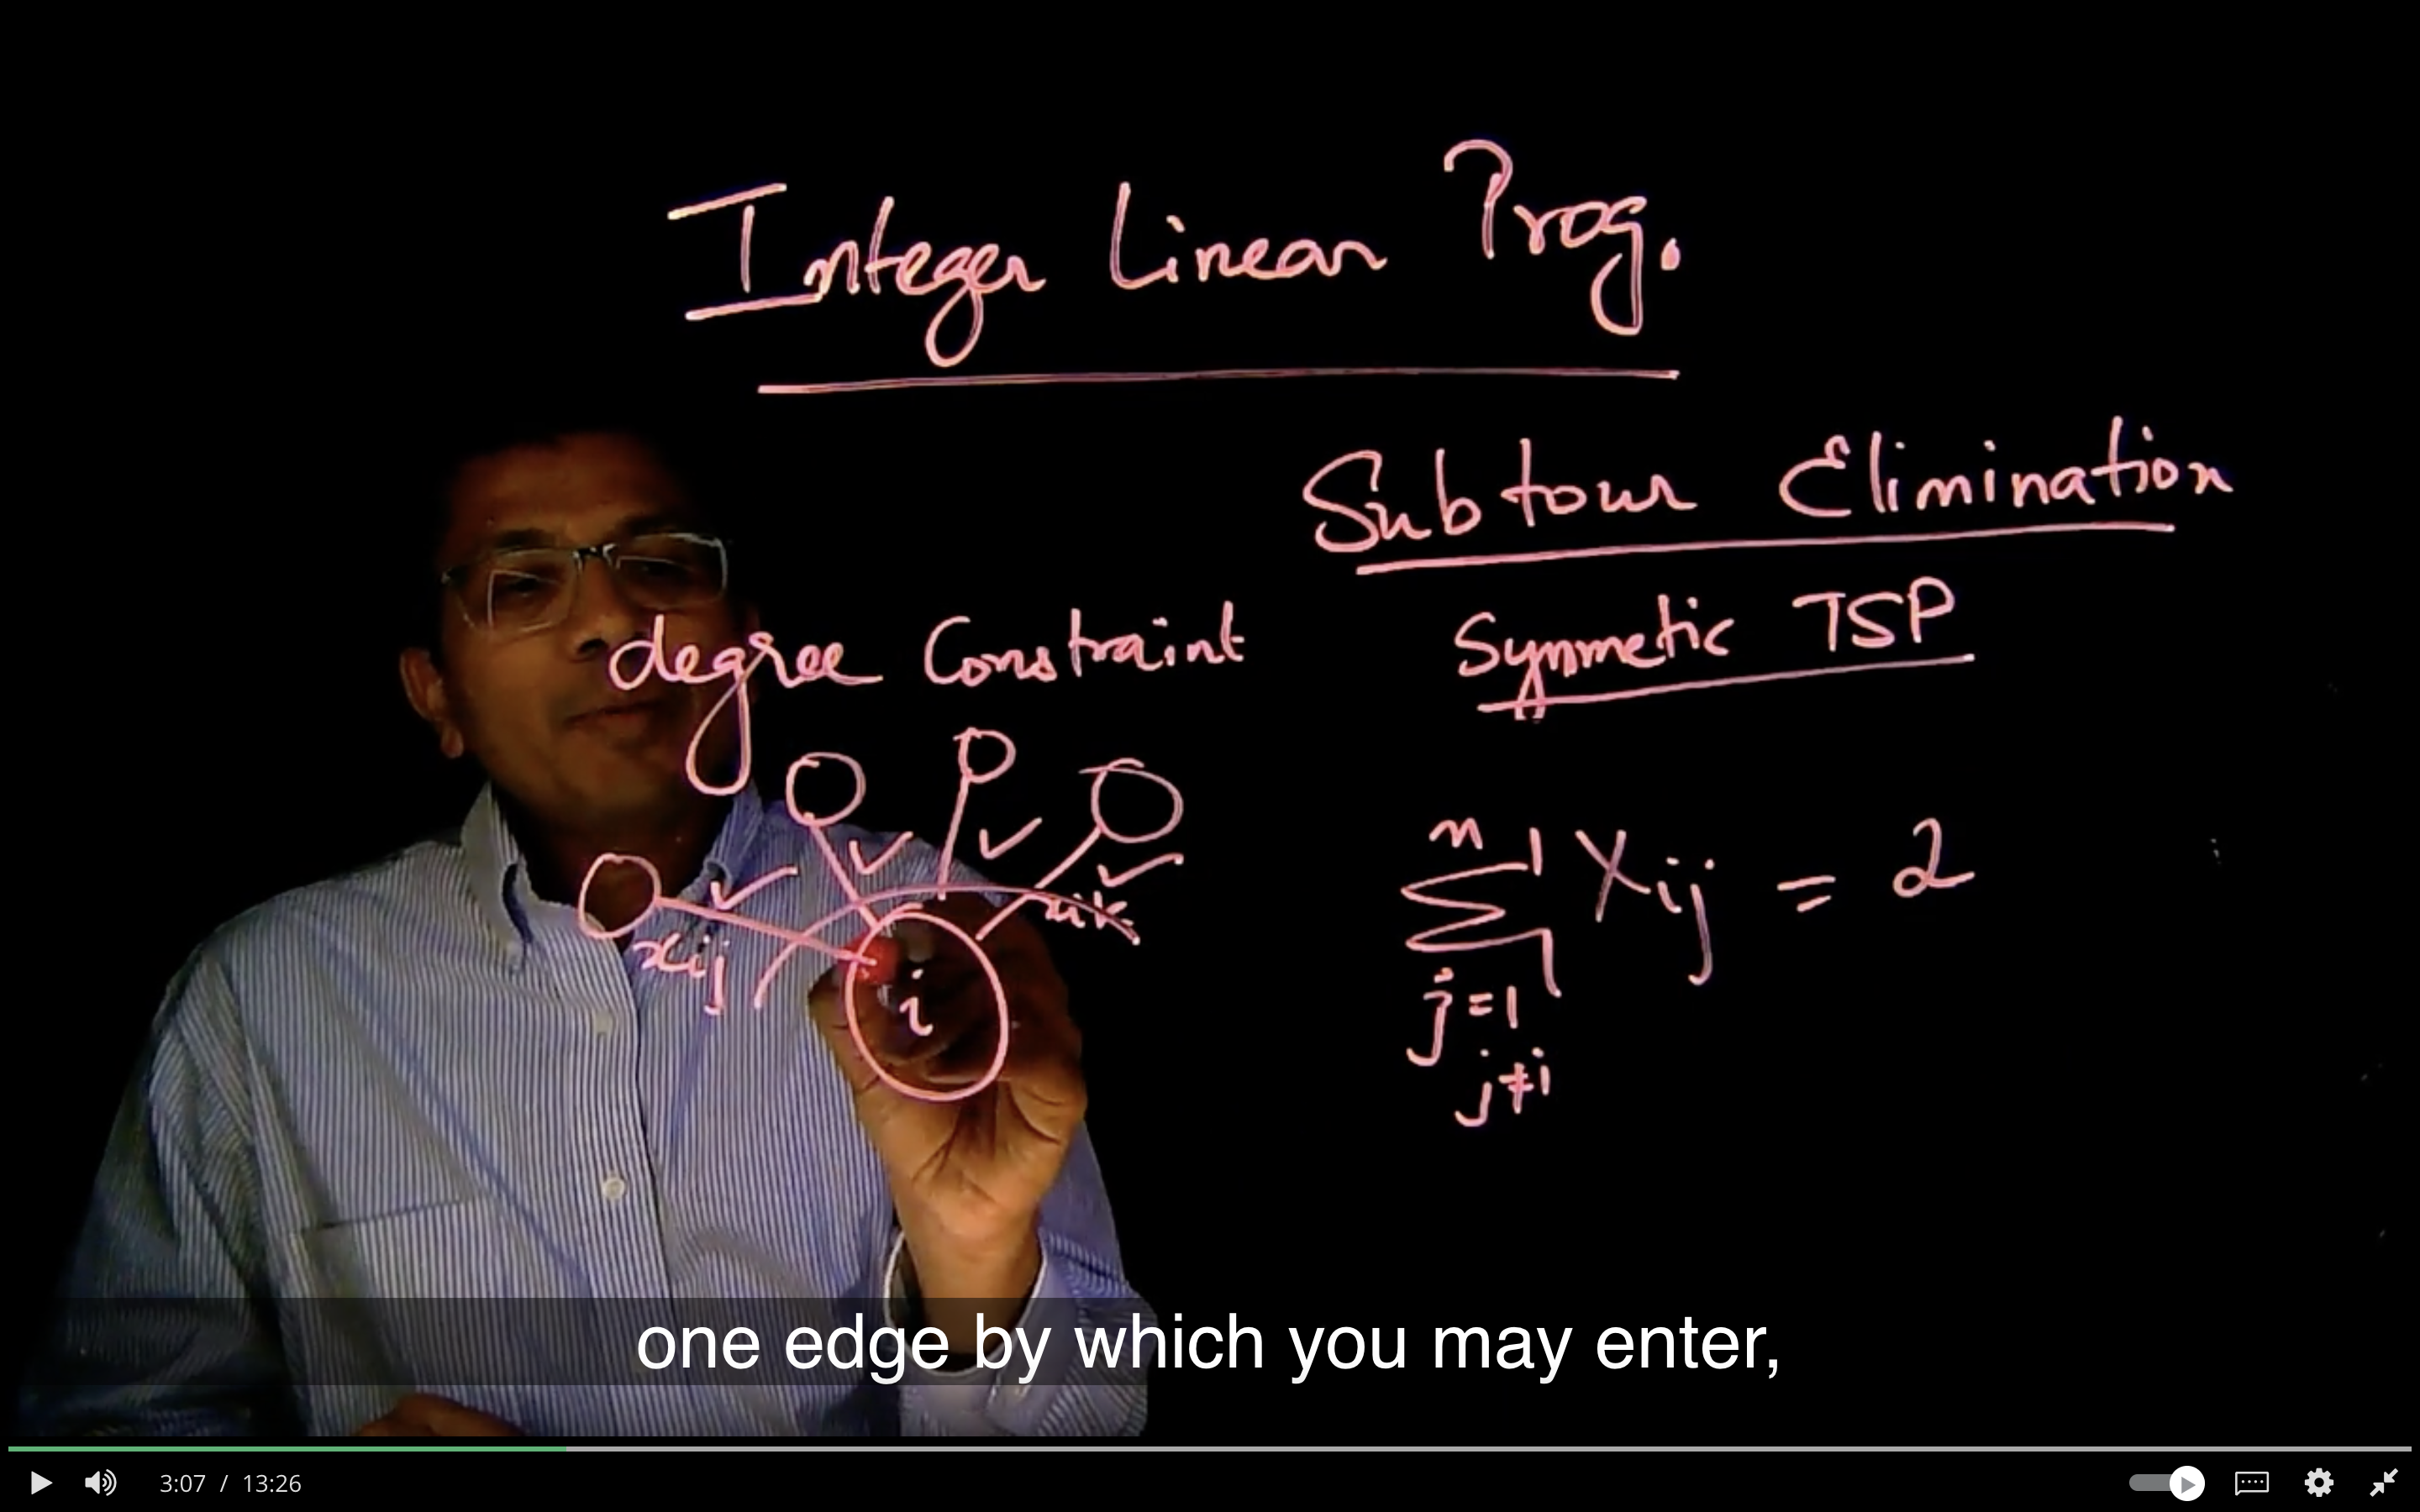 Integer Linear Prog.
Subtour Elimination
Symmetic TSP
degree Constraint
xij
xik
i
n
∑ Xij = 2
j=1
j≠i
one edge by which you may enter,
3:07 / 13:26